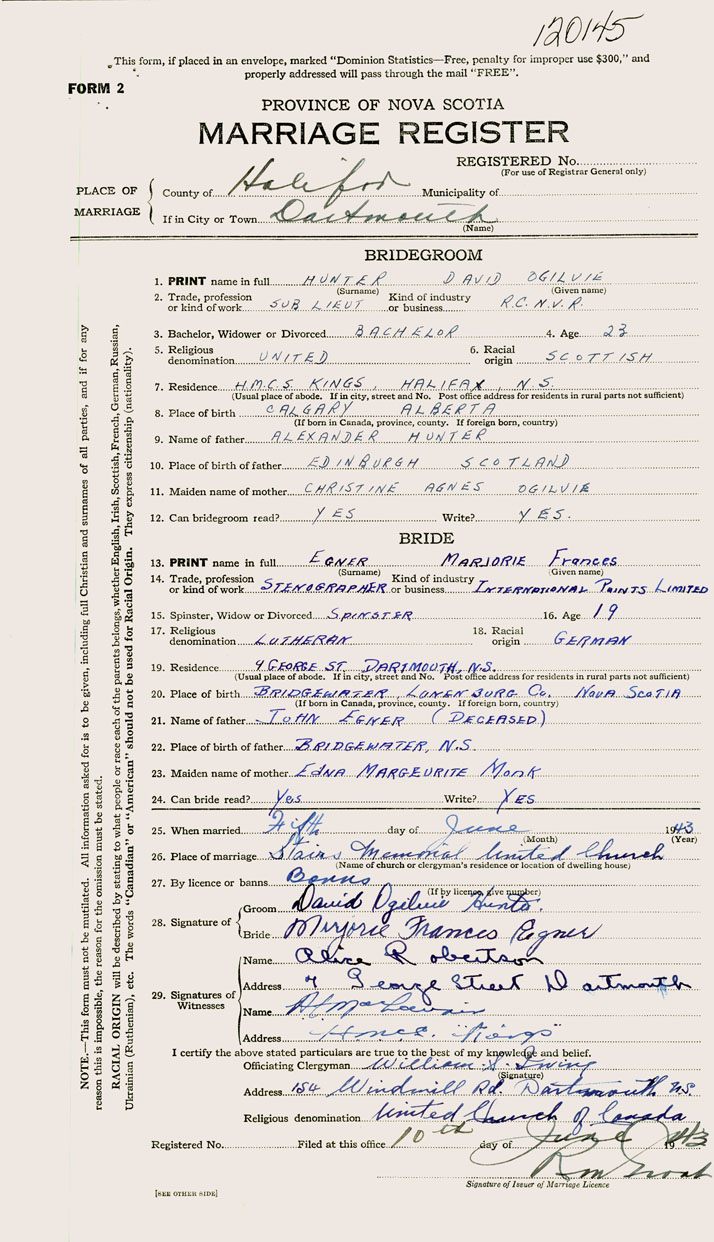 120145
This form, if placed in an envelope, marked "Dominion Statistics—Free, penalty for improper use $300," and
properly addressed will pass through the mail "FREE".
FORM 2
PROVINCE OF NOVA SCOTIA
MARRIAGE REGISTER
REGISTERED No.
(For use of Registrar General only)
PLACE OF MARRIAGE
County of Halifax Municipality of
If in City or Town Dartmouth
(Name)
BRIDEGROOM
1. PRINT name in full HUNTER DAVID OGILVIE
(Surname) (Given name)
2. Trade, profession or kind of work SUB LIEUT Kind of industry or business R.C.N.V.R.
3. Bachelor, Widower or Divorced BACHELOR 4. Age 23
5. Religious denomination UNITED 6. Racial origin SCOTTISH
7. Residence H.M.C.S KINGS, HALIFAX, N.S.
(Usual place of abode. If in city, street and No. Post office address for residents in rural parts not sufficient)
8. Place of birth CALGARY ALBERTA
(If born in Canada, province, county. If foreign born, country)
9. Name of father ALEXANDER HUNTER
10. Place of birth of father EDINBURGH SCOTLAND
11. Maiden name of mother CHRISTINE AGNES OGILVIE
12. Can bridegroom read? YES Write? YES.
BRIDE
13. PRINT name in full EGNER MARJORIE Frances
(Surname) (Given name)
14. Trade, profession or kind of work STENOGRAPHER Kind of industry or business INTERNATIONAL PAINTS LIMITED
15. Spinster, Widow or Divorced SPINSTER 16. Age 19
17. Religious denomination LUTHERAN 18. Racial origin GERMAN
19. Residence 9 GEORGE ST. DARTMOUTH, N.S.
(Usual place of abode. If in city, street and No. Post office address for residents in rural parts not sufficient)
20. Place of birth BRIDGEWATER, LUNENBURG Co. NOVA SCOTIA
(If born in Canada, province, county. If foreign born, country)
21. Name of father JOHN EGNER (DECEASED)
22. Place of birth of father BRIDGEWATER, N.S.
23. Maiden name of mother EDNA MARGEURITE Monk
24. Can bride read? Yes Write? YES
25. When married Fifth day of June 1943
(Month) (Year)
26. Place of marriage Stairs Memorial United Church
(Name of church or clergyman's residence or location of dwelling house)
27. By licence or banns Banns
(If by licence, give number)
28. Signature of
Groom David Ogilvie Hunter.
Bride Marjorie Frances Egner
29. Signatures of Witnesses
Name Alice Robertson
Address George Street Dartmouth
Name
Address H.M.C.S. "Kings"
I certify the above stated particulars are true to the best of my knowledge and belief.
Officiating Clergyman William S. Irving
(Signature)
Address 154 Windmill Rd. Dartmouth N.S.
Religious denomination United Church of Canada
Registered No. Filed at this office 10th day of June 1943
Signature of Issuer of Marriage Licence
[SEE OTHER SIDE]
NOTE.—This form must not be mutilated. All information asked for is to be given, including full Christian and surnames of all parties, and if for any
reason this is impossible, the reason for the omission must be stated.
RACIAL ORIGIN will be described by stating to what people or race each of the parents belongs, whether English, Irish, Scottish, French, German, Russian,
Ukrainian (Ruthenian), etc. The words "Canadian" or "American" should not be used for Racial Origin. They express citizenship (nationality).